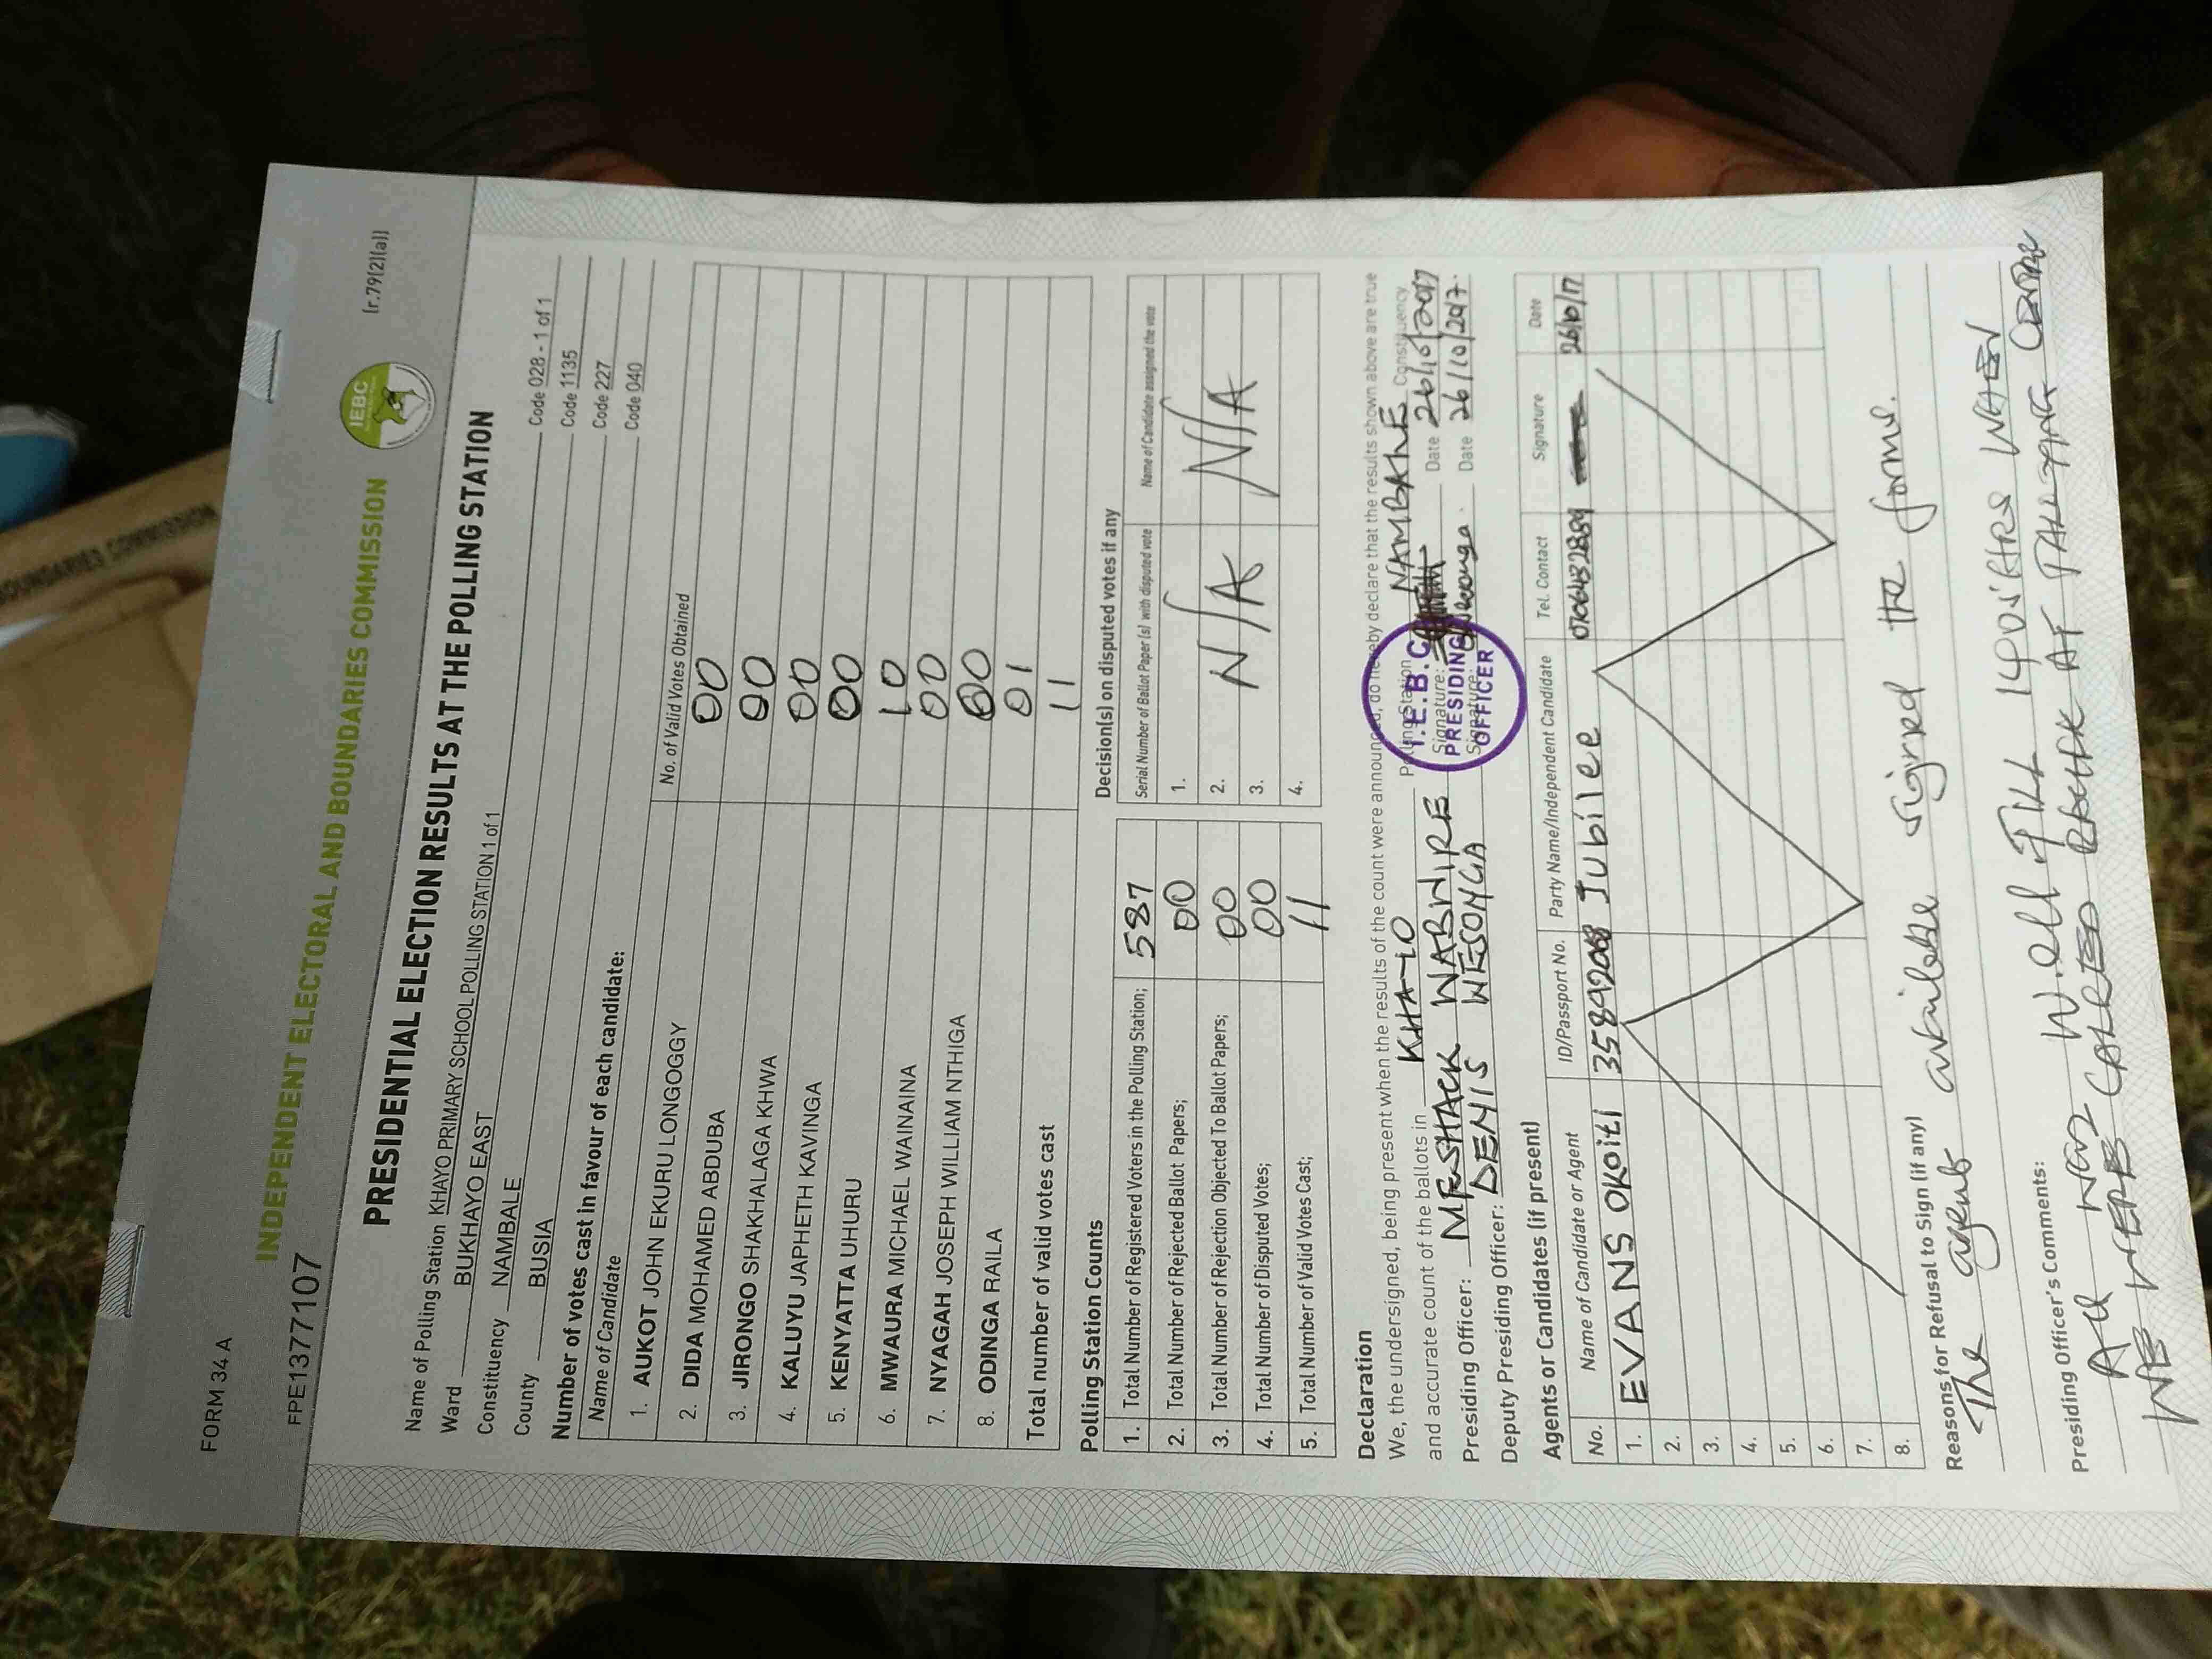 BOUNDARIES COMMISSION
FORM 34 A
(r.79(2)(a))
FPE1377107
INDEPENDENT ELECTORAL AND BOUNDARIES COMMISSION
IEBC
PRESIDENTIAL ELECTION RESULTS AT THE POLLING STATION
Name of Polling Station KHAYO PRIMARY SCHOOL POLLING STATION 1 of 1 Code 028 - 1 of 1
Ward BUKHAYO EAST Code 1135
Constituency NAMBALE Code 227
County BUSIA Code 040
Number of votes cast in favour of each candidate:
Name of Candidate No. of Valid Votes Obtained
1. AUKOT JOHN EKURU LONGOGGY 00
2. DIDA MOHAMED ABDUBA 00
3. JIRONGO SHAKHALAGA KHWA 00
4. KALUYU JAPHETH KAVINGA 00
5. KENYATTA UHURU 10
6. MWAURA MICHAEL WAINAINA 00
7. NYAGAH JOSEPH WILLIAM NTHIGA 00
8. ODINGA RAILA 01
Total number of valid votes cast 11
Polling Station Counts
1. Total Number of Registered Voters in the Polling Station; 587
2. Total Number of Rejected Ballot Papers; 00
3. Total Number of Rejection Objected To Ballot Papers; 00
4. Total Number of Disputed Votes; 00
5. Total Number of Valid Votes Cast; 11
Decision(s) on disputed votes if any
Serial Number of Ballot Paper(s) with disputed vote Name of Candidate assigned the vote
1.
2. N/A N/A
3.
4.
Declaration
We, the undersigned, being present when the results of the count were announced, do hereby declare that the results shown above are true
and accurate count of the ballots in KHAYO Polling Station NAMBALE Constituency
Presiding Officer: MESHACK WABWIRE Signature: Date 26/10/2017
Deputy Presiding Officer: DENIS WESONGA Signature: Date 26/10/2017.
I.E.B.C
PRESIDING
OFFICER
Agents or Candidates (if present)
No. Name of Candidate or Agent ID/Passport No. Party Name/Independent Candidate Tel. Contact Signature Date
1. EVANS OKOITI Jubilee 26/10/17
2.
3.
4.
5.
6.
7.
8.
Reasons for Refusal to Sign (if any)
The agents available signed the forms.
Presiding Officer's Comments:
All was well till 1400 HRS WHEN
WE WERE CALLED BACK AT TALLYING CENTRE